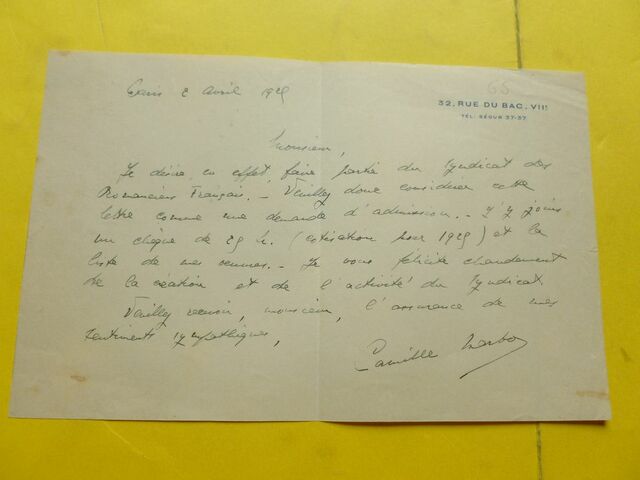 65
32, RUE DU BAC, VIIe
TÉL. SÉGUR 37-37
Paris 2 avril 1929
Monsieur,
Je désire, en effet, faire partie du Syndicat des
Romanciers Français. – Veuillez donc considérer cette
lettre comme une demande d'admission. – J'y joins
un chèque de 25 fr. (cotisation pour 1929) et la
liste de mes œuvres. – Je vous félicite chaudement
de la création et de l'activité du Syndicat.
Veuillez recevoir, monsieur, l'assurance de mes
sentiments sympathiques,
Camille Marbo